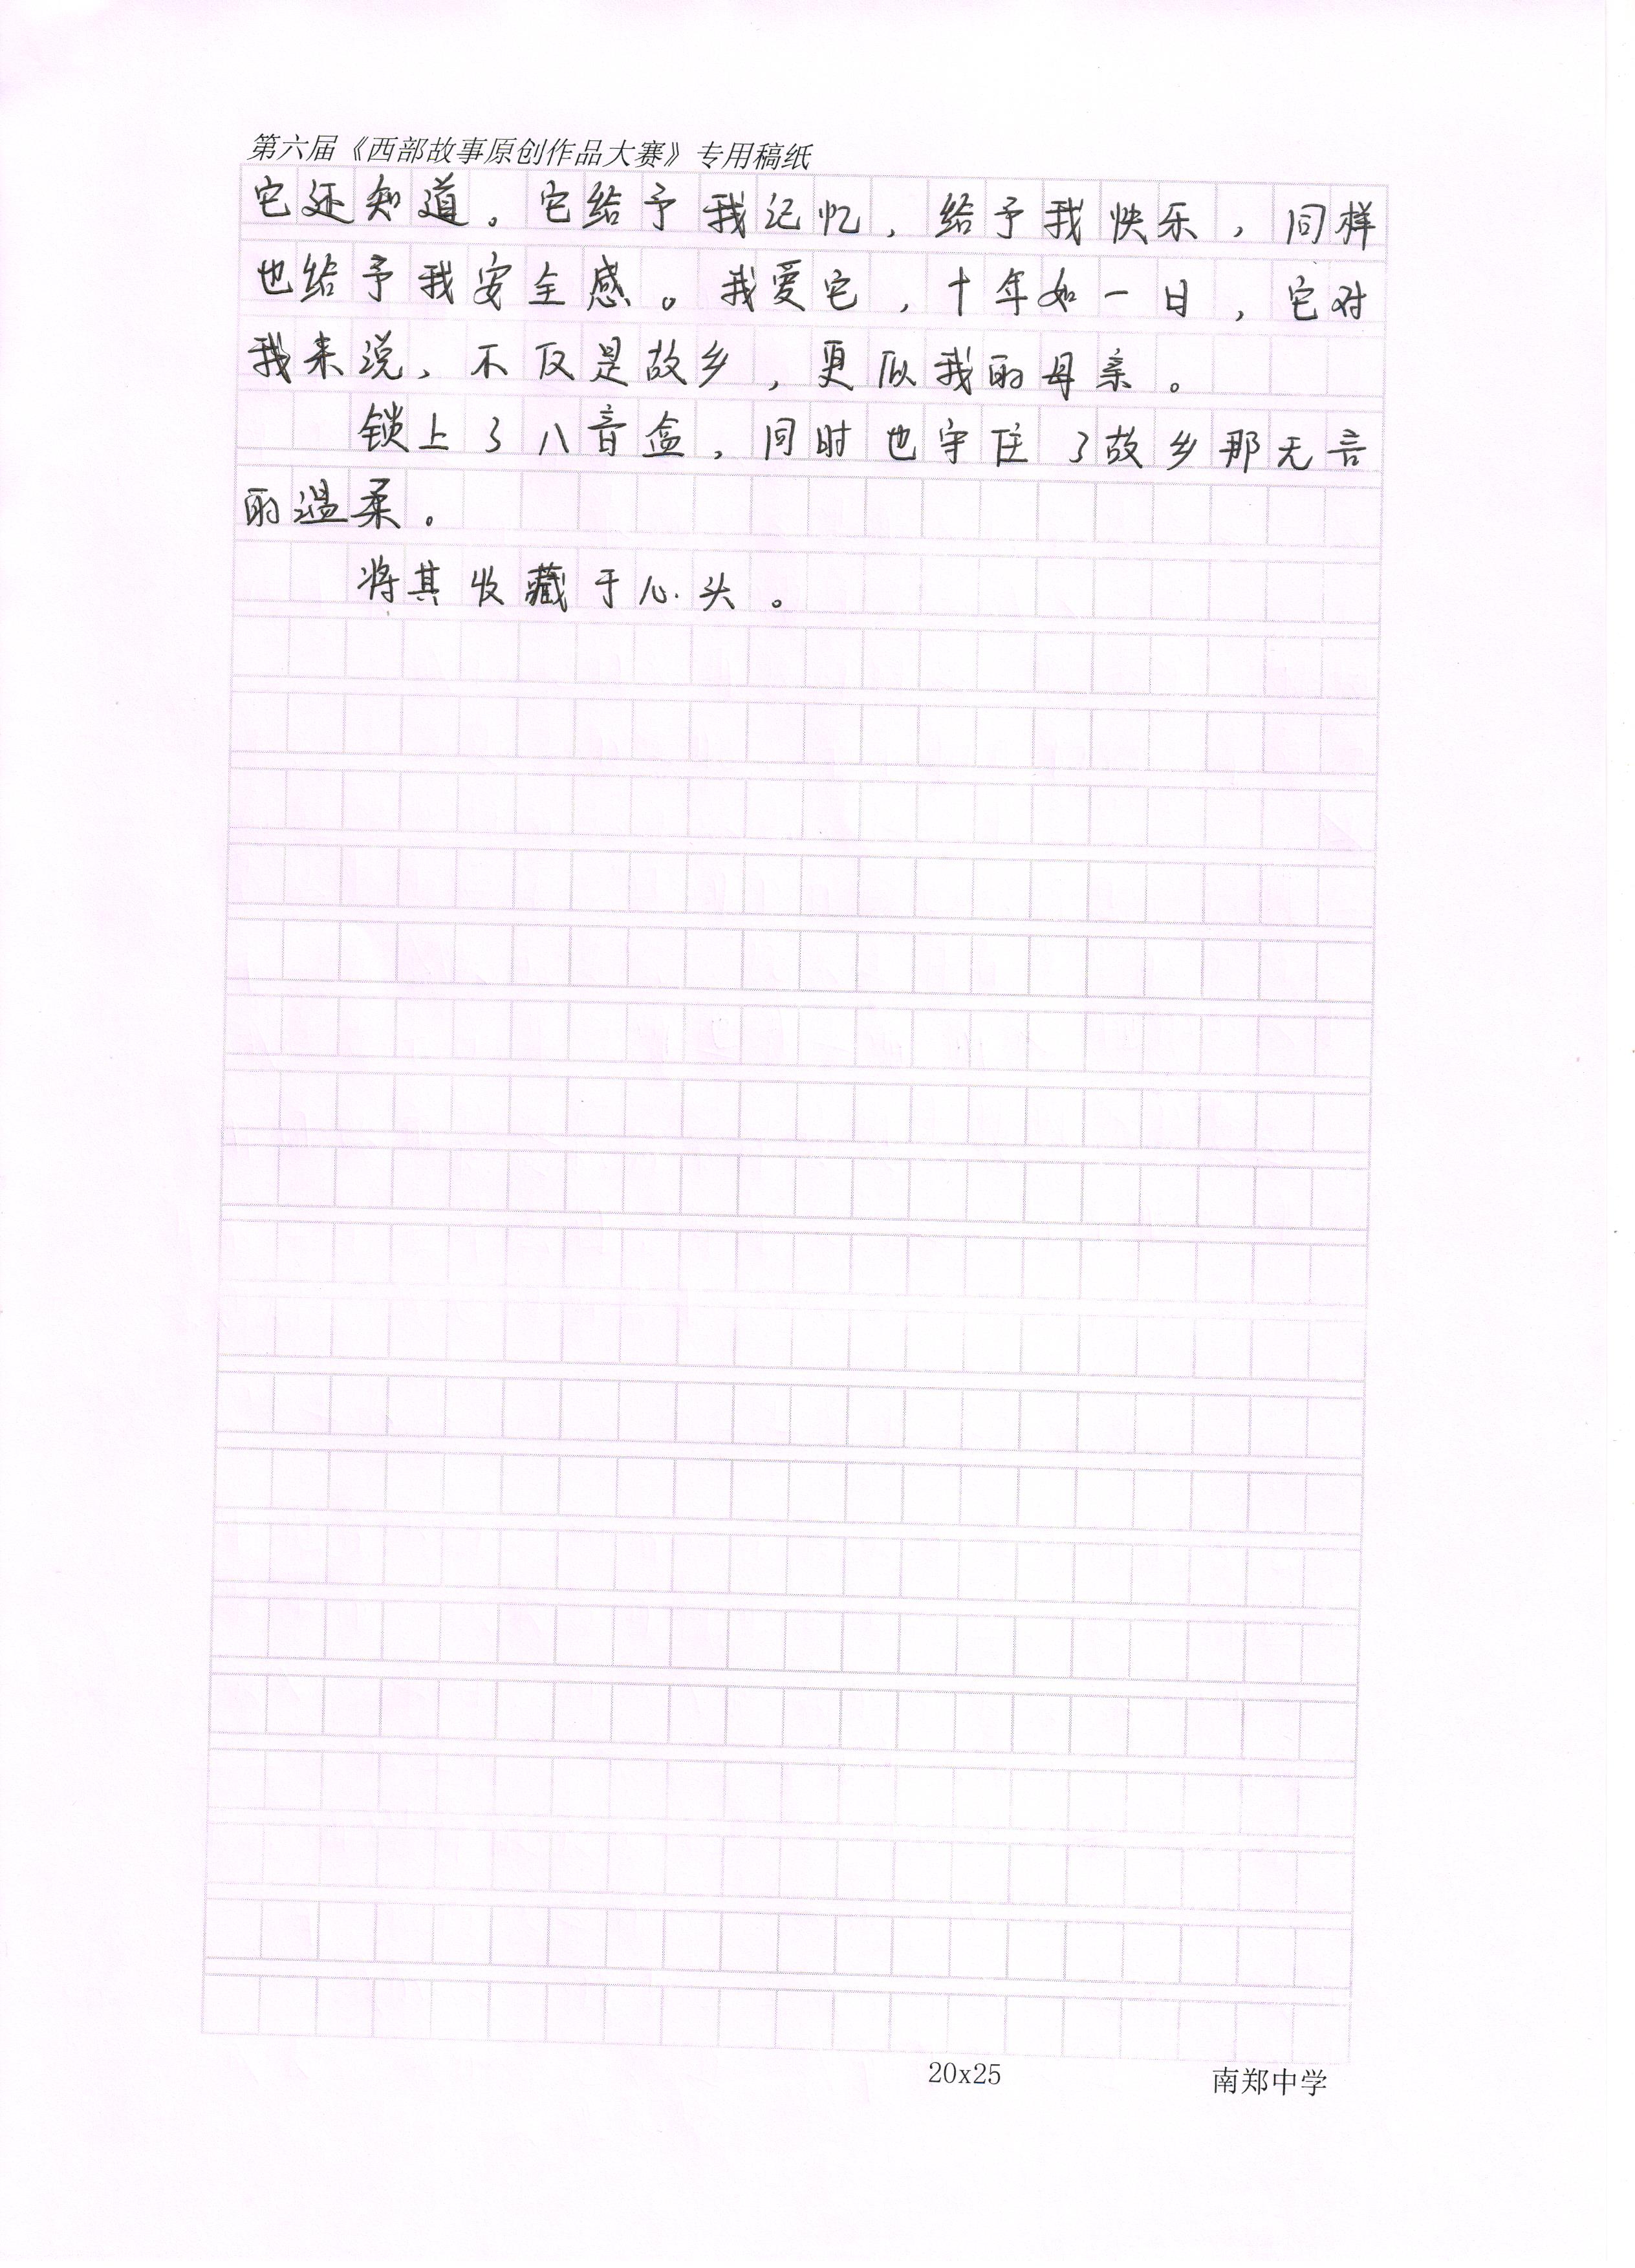 第六届《西部故事原创作品大赛》专用稿纸
它还知道。它给予我记忆,给予我快乐,同样
也给予我安全感。我爱它,十年如一日,它对
我来说,不仅是故乡,更似我的母亲。
锁上了八音盒,同时也守住了故乡那无言
的温柔。
将其收藏于心头。
20x25 南郑中学